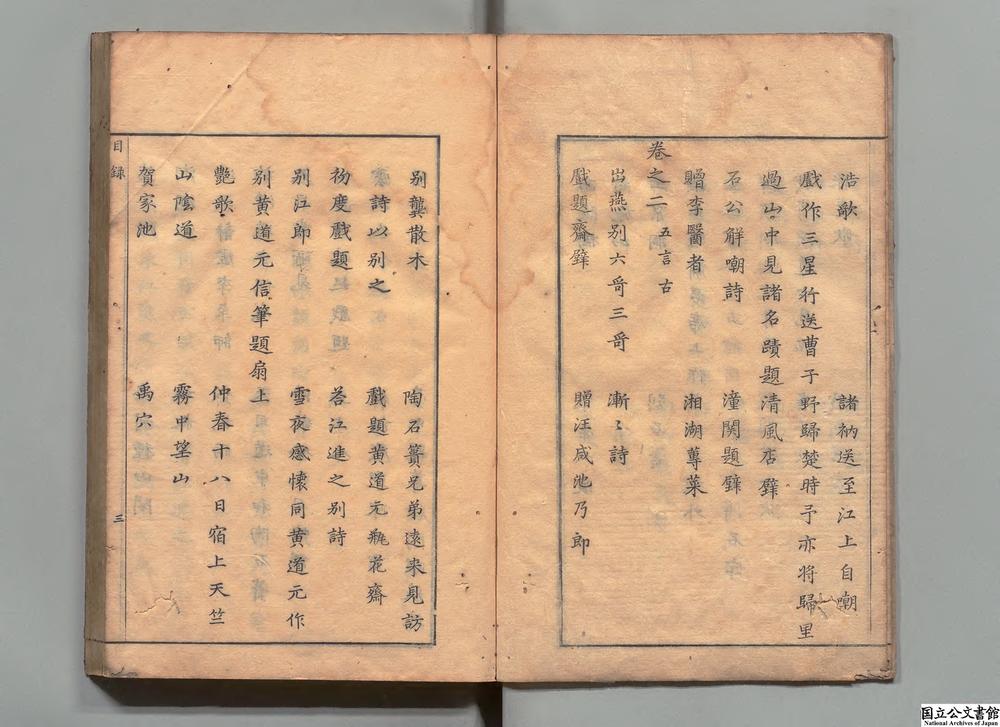 浩歌　諸衲送至江上自嘲
戲作三星行送曹子野歸楚時予亦将歸里
過山中見諸名蹟題清風店壁
石公解嘲詩　潼関題壁
贈李醫者　湘湖蓴菜
卷之二 五言古
出燕别六哥三哥　漸〻詩
戲題齋壁　贈汪咸池乃郎
别龔散木　陶石簣兄弟遠来見訪
詩以别之　戲題黄道元瓶花齋
初度戲題　荅江進之别詩
别江郎　雪夜感懐同黄道元作
别黄道元信筆題扇上
艷歌　仲春十八日宿上天竺
山陰道　霧中望山
賀家池　禹穴
目録
三
国立公文書館
National Archives of Japan